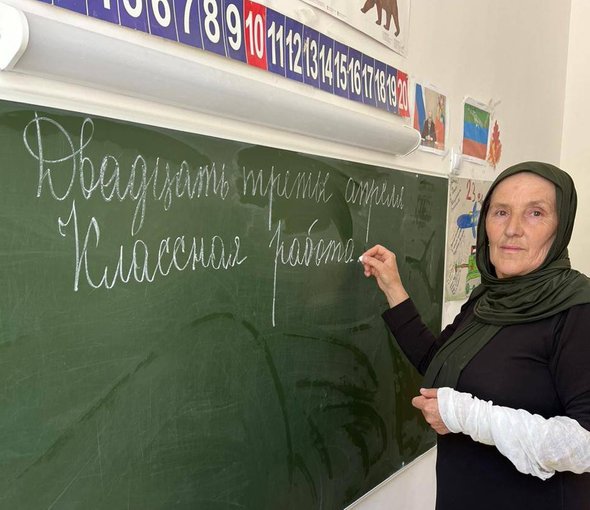 5 6 7 8 9 10 11 12 13 14 15 16 17 18 19 20
Двадцать третье апреля
Классная работа
23